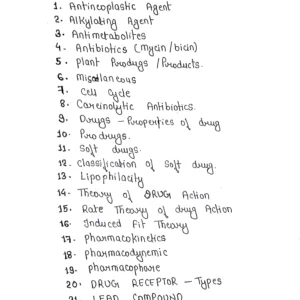 1. Antineoplastic Agent
2. Alkylating Agent
3. Antimetabolites
4. Antibiotics (mycin/bicin)
5. plant Produgs / Products.
6. miscellaneous
7. Cell Cycle
8. Carcinolytic Antibiotics.
9. Drugs - Properties of drug
10. Pro drugs.
11. Soft drugs.
12. Classification of Soft drug.
13. Lipophilacity
14. Theory of DRUG Action
15. Rate Theory of drug Action
16. Induced Fit Theory
17. pharmacokinetics
18. pharmacodynemic
19. pharmacophore
20. DRUG RECEPTOR - Types
21. LEAD COMPOUND